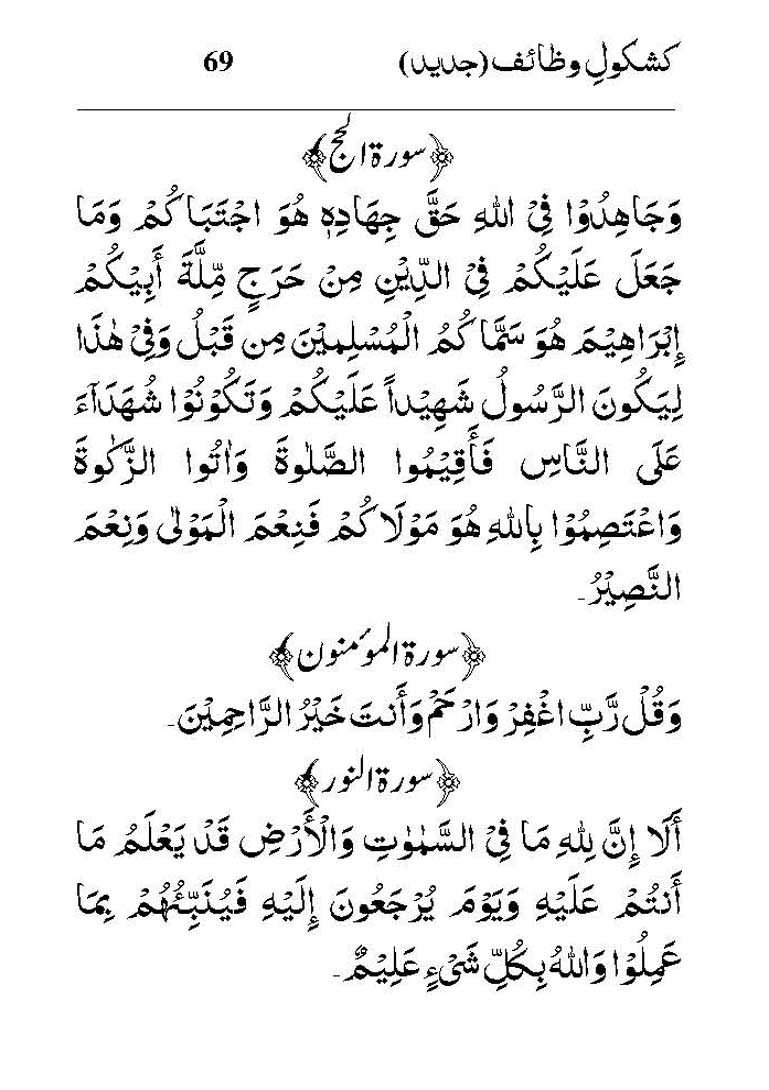 کشکولِ وظائف (جدید) 69
﴿سورۃ الحج﴾
وَجَاهِدُوْا فِيْ اللهِ حَقَّ جِهَادِهٖ هُوَ اجْتَبَاكُمْ وَمَا
جَعَلَ عَلَيْكُمْ فِيْ الدِّيْنِ مِنْ حَرَجٍ مِّلَّةَ أَبِيْكُمْ
إِبْرَاهِيْمَ هُوَ سَمَّاكُمُ الْمُسْلِمِيْنَ مِن قَبْلُ وَفِيْ هٰذَا
لِيَكُونَ الرَّسُولُ شَهِيْداً عَلَيْكُمْ وَتَكُوْنُوْا شُهَدَآءَ
عَلَى النَّاسِ فَأَقِيْمُوا الصَّلٰوةَ وَاٰتُوا الزَّكٰوةَ
وَاعْتَصِمُوْا بِاللهِ هُوَ مَوْلَاكُمْ فَنِعْمَ الْمَوْلىٰ وَنِعْمَ
النَّصِيْرُ۔
﴿سورۃ المؤمنون﴾
وَقُلْ رَّبِّ اغْفِرْ وَارْحَمْ وَأَنتَ خَيْرُ الرَّاحِمِيْنَ۔
﴿سورۃ النور﴾
أَلَا إِنَّ لِلهِ مَا فِيْ السَّمٰوٰتِ وَالْأَرْضِ قَدْ يَعْلَمُ مَا
أَنتُمْ عَلَيْهِ وَيَوْمَ يُرْجَعُونَ إِلَيْهِ فَيُنَبِّئُهُمْ بِمَا
عَمِلُوْا وَاللهُ بِكُلِّ شَيْءٍ عَلِيْمٌ۔